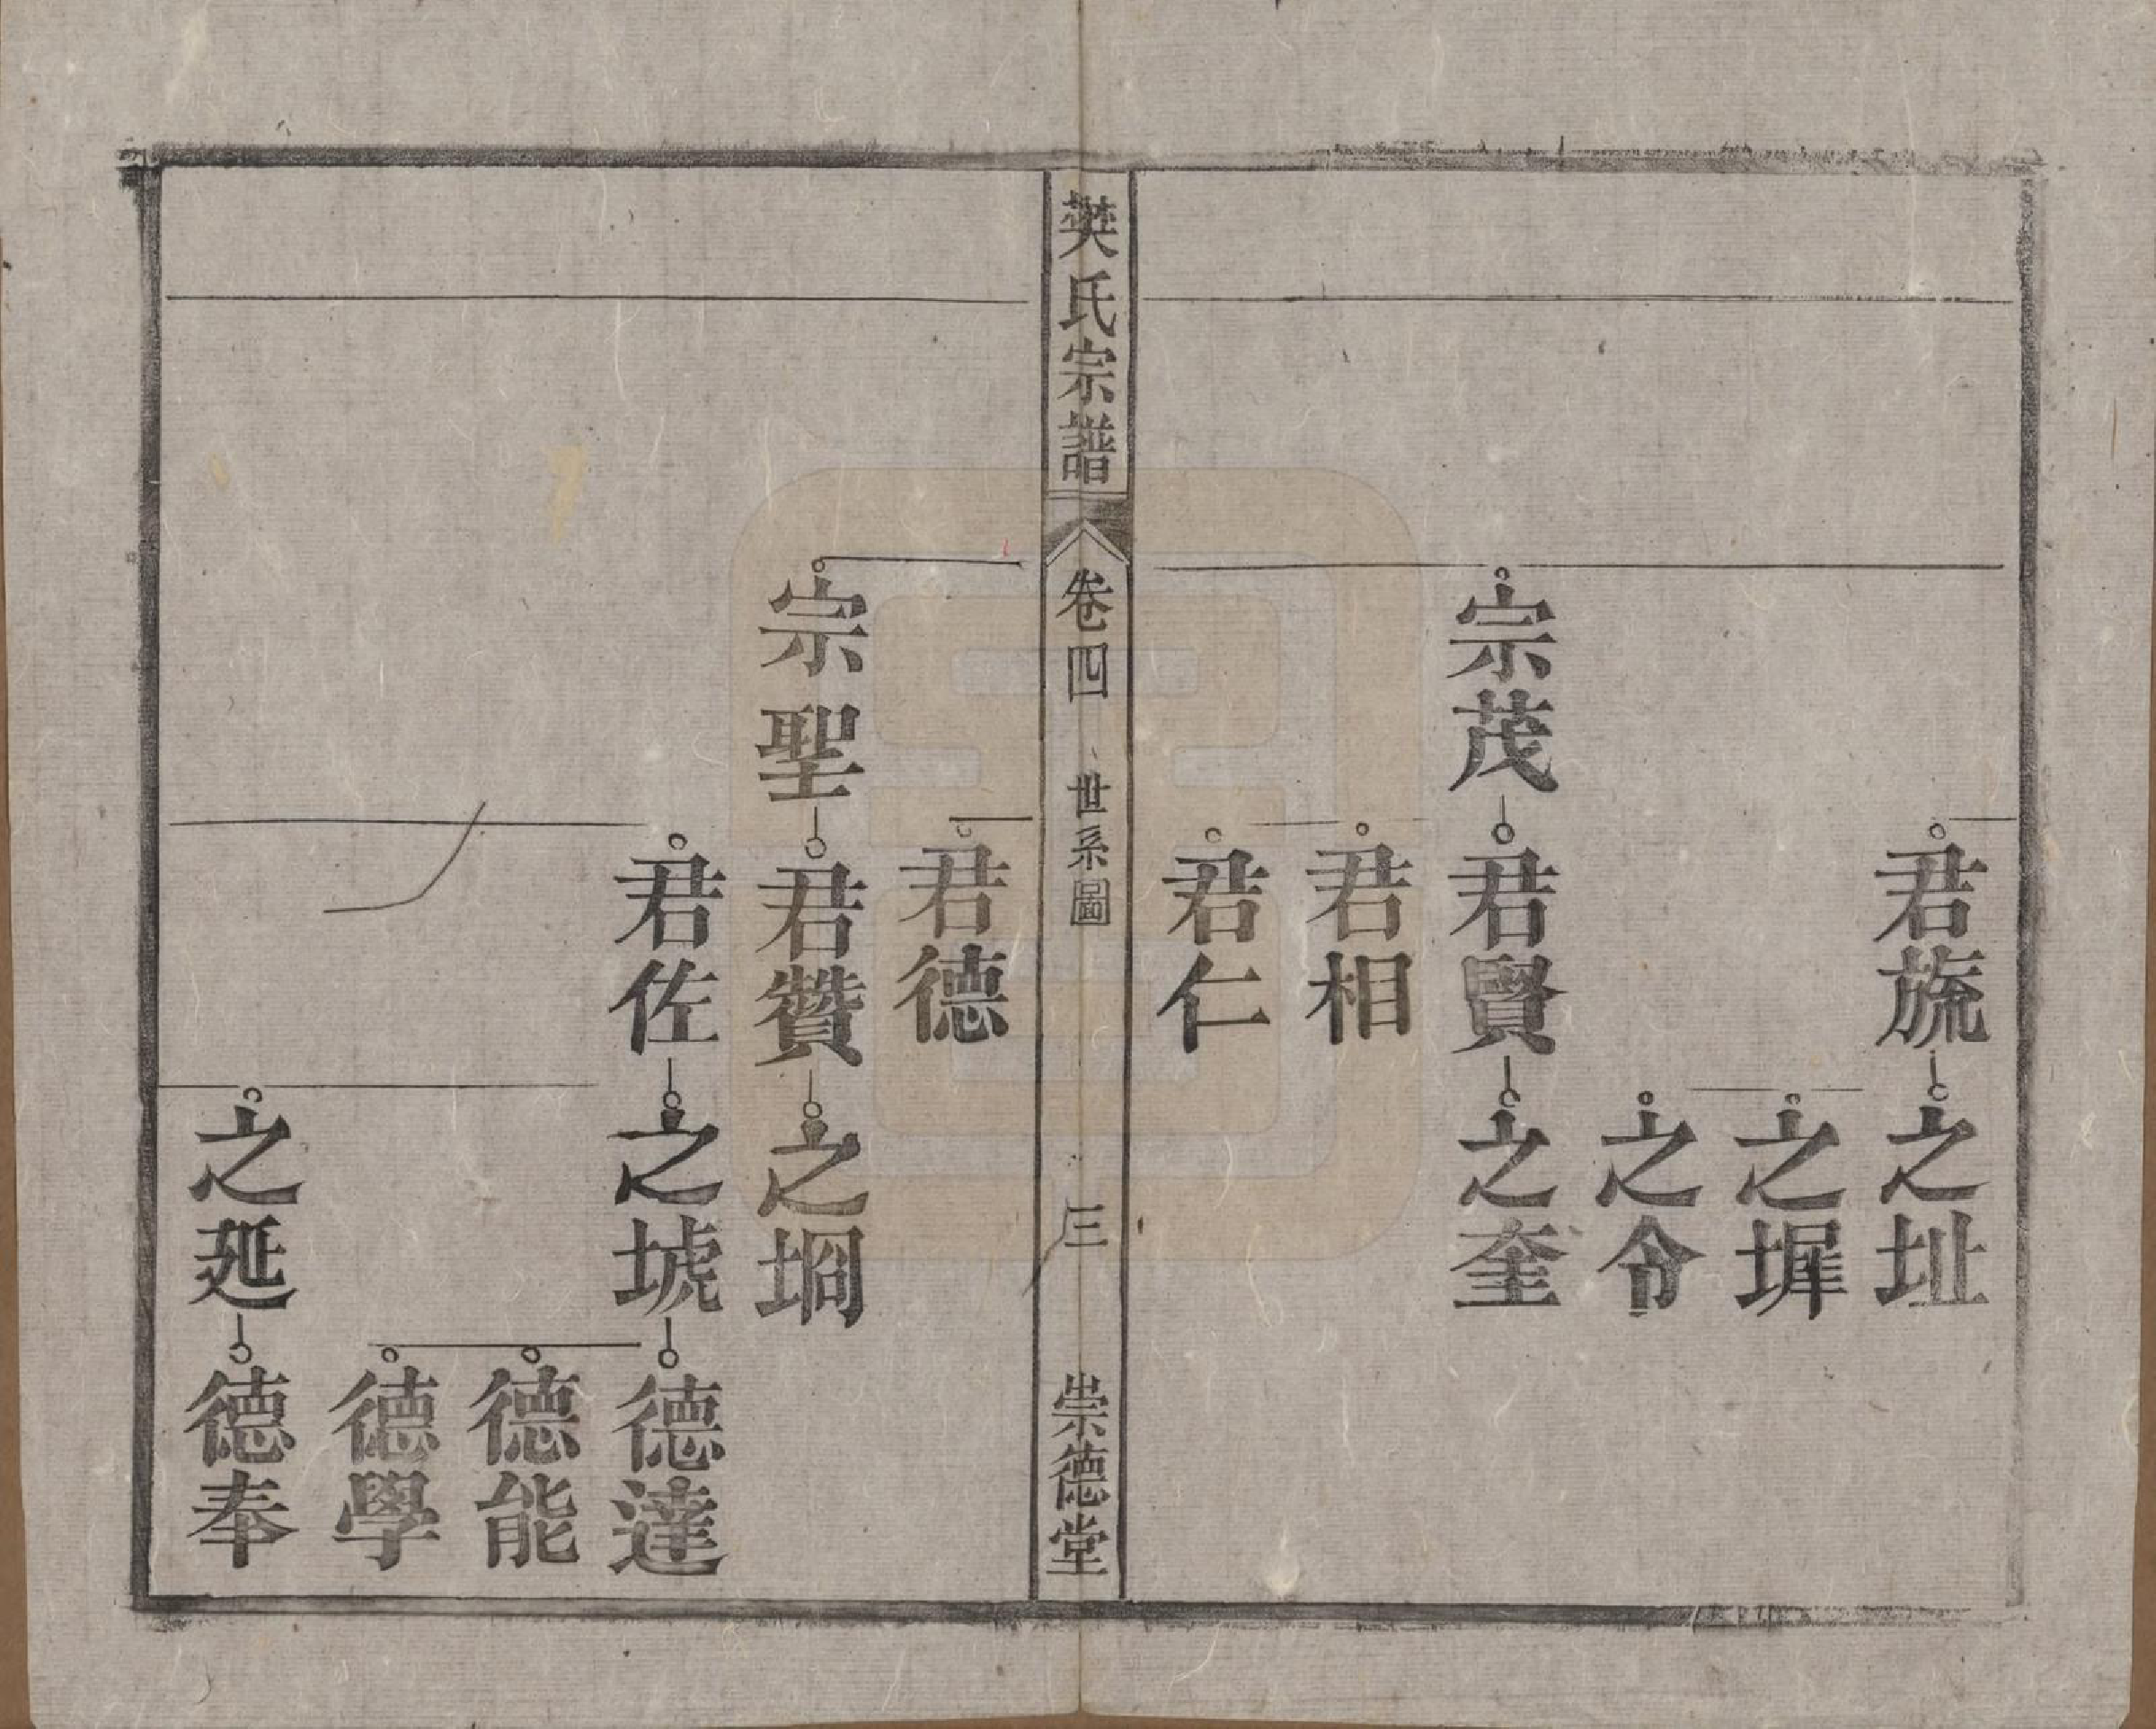 君旒
之址
之墀
之令
宗茂
君賢
之奎
君相
君仁
樊氏宗譜
卷四
世系圖
三
崇德堂
君德
宗聖
君贊
之堈
君佐
之㙈
德達
德能
德學
之延
德奉